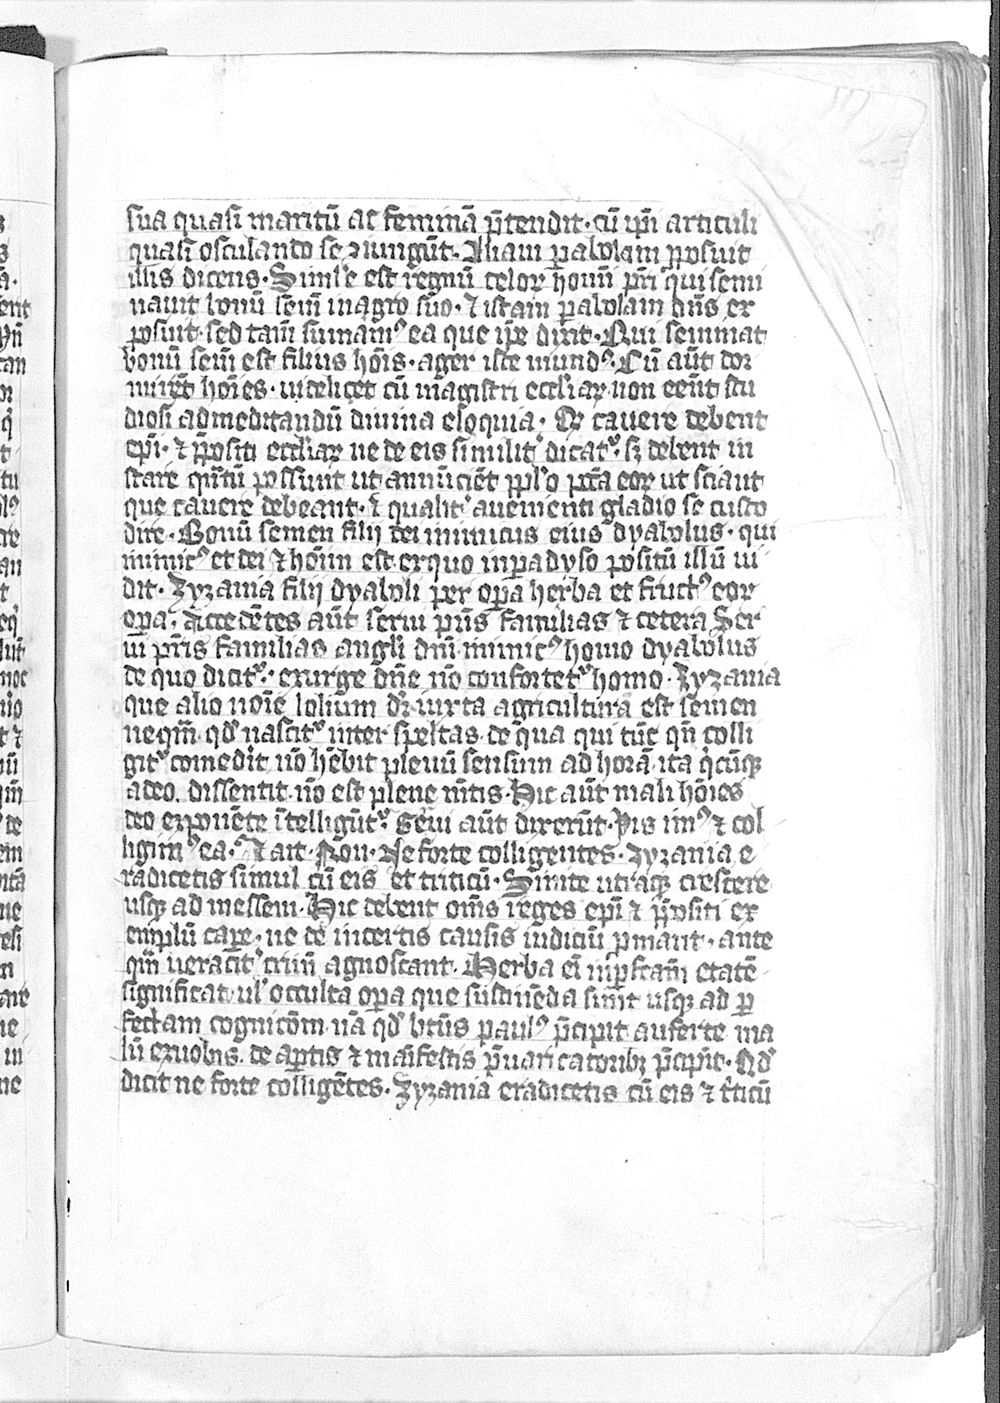 sua quasi maritū ac feminā p̄tendit · cū ip̄i articuli
quasi osculando se ↄiungūt · Aliam parabolam p̱posuit
illis dicens · Simile est regnū celoꝝ homī pr̄i qui semi
nauit bonū semē in agro suo · ⁊ istam parabolam dn̄s ex
posuit · sed tam̄ sumamꝰ ea que ip̄e dixit · Qui seminat
bonū sem̄ est filius ho̅is · ager iste mundꝰ · Cū aūt dor
mirēt hoīes · uidelicet cū magistri eccl̄iaꝝ non eēnt stu
diosi ad meditandū diuina eloquia · Qꝛ cauere debent
ep̄i · ⁊ p̄positi eccl̄iaꝝ ne de eis similiť dicať · sꝫ debent in
stare qn̄tū possunt ut annūciēt ppl̄o pc̄ta eoꝝ ut sciant
que cauere debeant · ⁊ qualiť auenienti gladio se custo
dire · Bonū semen filij dei inimicus eius dyabolus · qui
inimicꝰ et dei ⁊ hoīm est · ex quo in paradyso positū illū ui
dit · Zyzania filij dyaboli per opa herba et fructꝰ eoꝝ
opa · Accedētes aūt serui pr̄is familias ⁊ cetera Ser
ui pr̄is familias angl̄i dn̄i inimicꝰ homo dyabolus
de quo diciť · exurge dn̄e nō conforteť homo · Zyzania
que alio noīe lolium dꝛ iuxta agriculturā est semen
neqm̄ qd̄ nasciť inter speltas de qua qui tūc qn̄ colli
giť comedit nō hēbit plenū sensum ad horā ita q̇cūqꝫ
a deo dissentit nō est plene m̄tis · Hic aūt mali hoīes
deo exponēte ītelligūť · Serui aūt dixerūt · Vis imꝰ ⁊ col
ligimꝰ ea · Et ait · Non · Ne forte colligentes · Zyzania e
radicetis simul cū eis et triticū · Sinite utraqꝫ crescere
usqꝫ ad messem · Hic debent om̄s reges ep̄i ⁊ p̄positi ex
emplū cape · ne de incertis causis iudiciū p̱mant · ante
qm̄ ueraciť crim̄ agnoscant · Herba eī inperfectam etatē
significat · ul̄ occulta opa que sustinēda sunt usqꝫ ad per
fectam cognicōm · nā qd̄ btūs paulꝰ p̄cipit auferte ma
lū ex uobis · de aptis ⁊ manifestis p̄uaricatoribꝫ p̄cipit · Qd̄
dicit ne forte colligētes · Zyzania eradicetis cū eis ⁊ t̄ticū